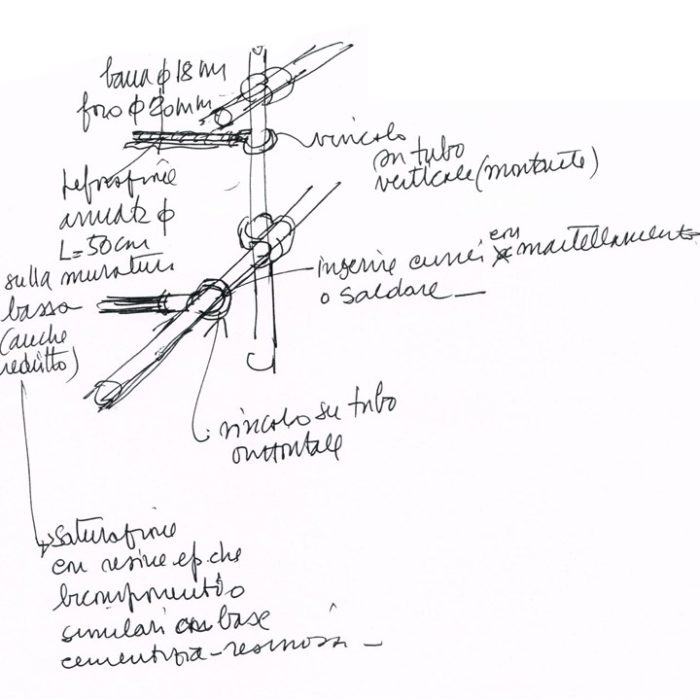 barra ϕ 18 mm
foro ϕ 20 mm
vincolo
su tubo
verticale (montante)
Perforazione
armata ϕ
L=50cm
sulla muratura
bassa
(anche
ridotto)
inserire cunei con martellamento
o saldare —
vincolo su tubo
orizzontale
saturazione
con resine ep.che
bicomponenti o
similari con base
cementizia-resinosa —